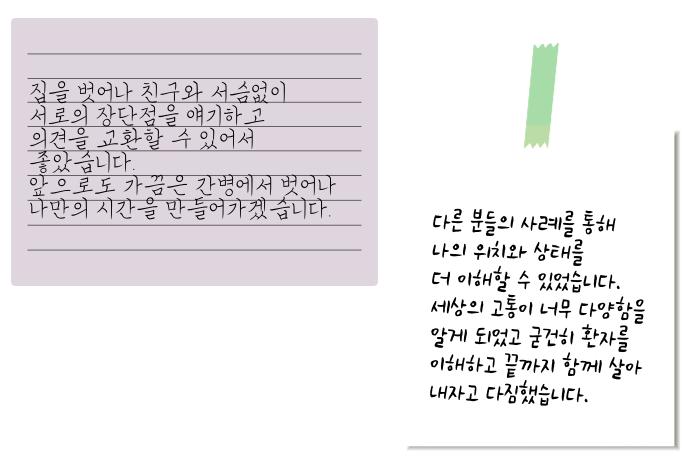 집을 벗어나 친구와 서슴없이
서로의 장단점을 얘기하고
의견을 교환할 수 있어서
좋았습니다.
앞으로도 가끔은 간병에서 벗어나
나만의 시간을 만들어가겠습니다.
다른 분들의 사례를 통해
나의 위치와 상태를
더 이해할 수 있었습니다.
세상의 고통이 너무 다양함을
알게 되었고 굳건히 환자를
이해하고 끝까지 함께 살아
내자고 다짐했습니다.